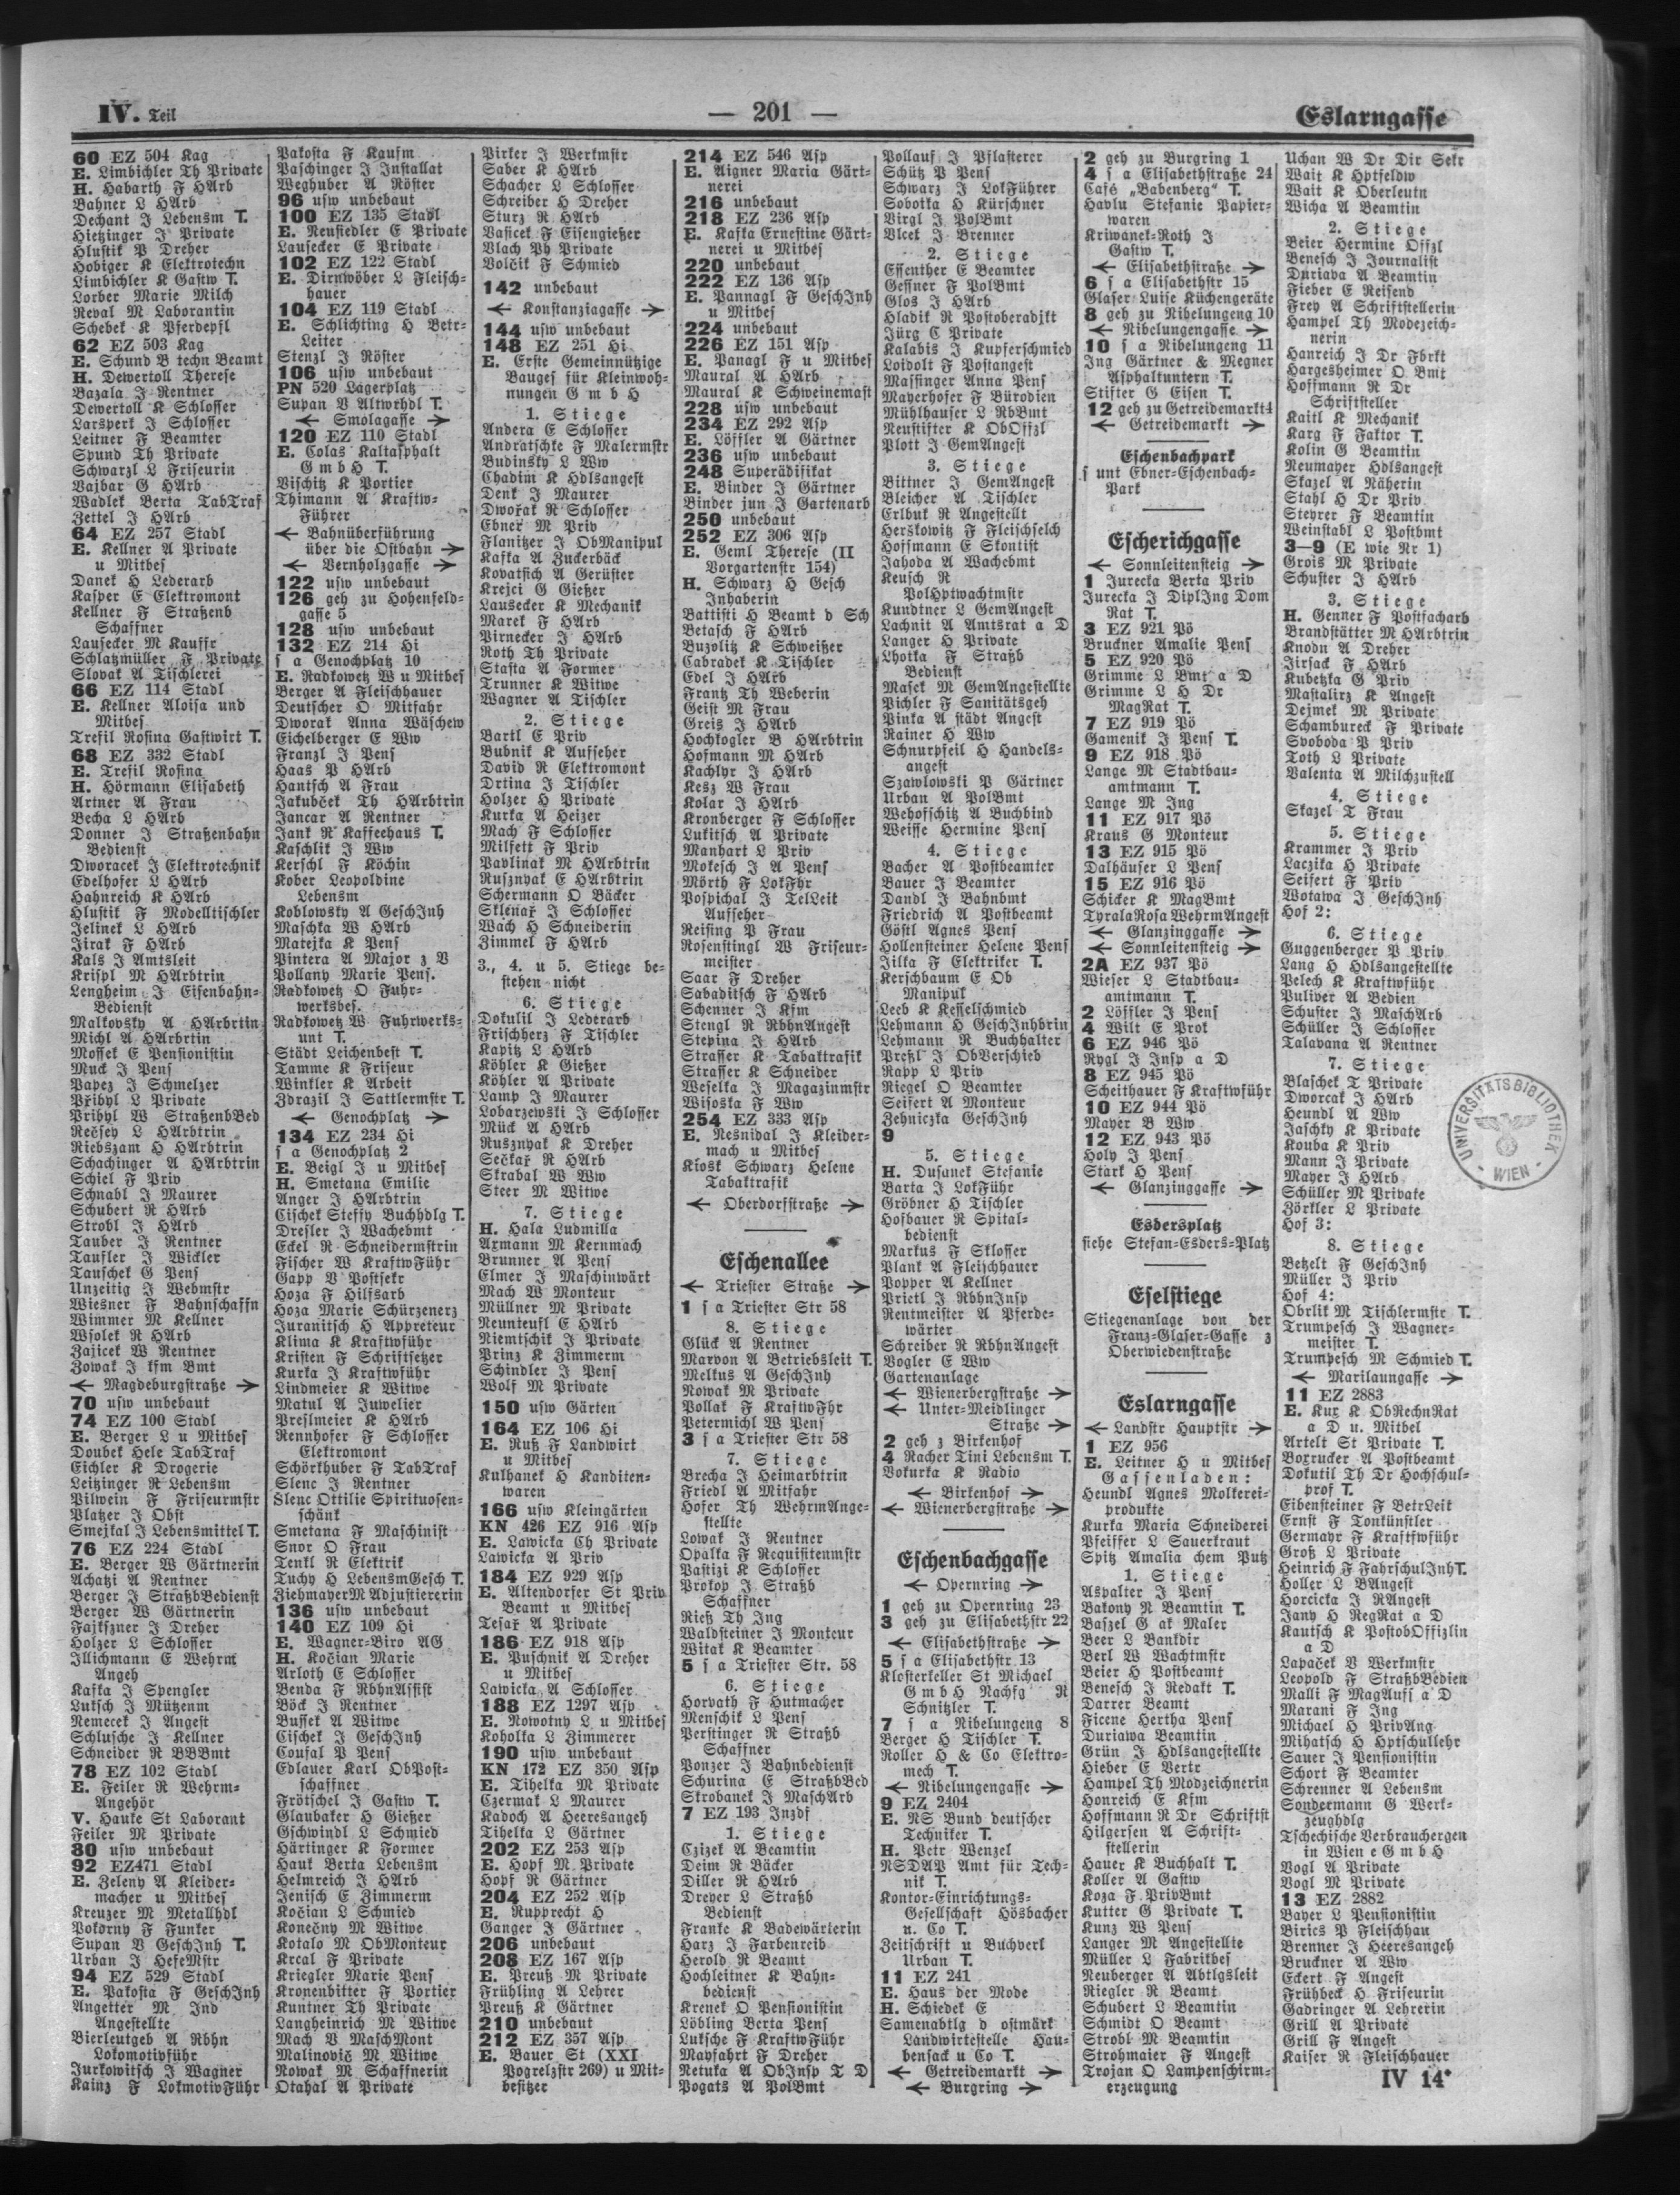 IV. Teil
— 201 —
Eslarngasse
60 EZ 504 Kag
E. Limbichler Th Private
H. Habarth F HArb
Bahner L HArb
Dechant J Lebensm T.
Hietzinger J Private
Hlustik P Dreher
Hobiger K Elektrotechn
Limbichler K Gastw T.
Lorber Marie Milch
Reval M Laborantin
Schebek K Pferdepfl
62 EZ 503 Kag
E. Schund B techn Beamt
H. Dewertoll Therese
Bazala J Rentner
Dewertoll K Schlosser
Larsperk J Schlosser
Leitner F Beamter
Spund Th Private
Schwarzl L Friseurin
Vajbar G HArb
Wadlek Berta TabTraf
Zettel J HArb
64 EZ 257 Stadl
E. Kellner A Private
u Mitbes
Danek H Lederarb
Kasper E Elektromont
Kellner F Straßenb
Schaffner
Lausecker M Kauffr
Schlatzmüller F Private
Slovak A Tischlerei
66 EZ 114 Stadl
E. Kellner Aloisa und
Mitbes
Tresil Rosina Gastwirt T.
68 EZ 332 Stadl
E. Tresil Rosina
H. Hörmann Elisabeth
Artner A Frau
Becha L HArb
Donner J Straßenbahn
Bedienst
Dworacek J Elektrotechnik
Edelhofer L HArb
Hahnreich K HArb
Hlustik F Modelltischler
Jelinek L HArb
Jirak F HArb
Kals J Amtsleit
Krispl M HArbtrin
Lengheim J Eisenbahn-
Bedienst
Malkovsky A HArbrtin
Michl A HArbrtin
Mossek E Pensionistin
Muck J Pens
Papez J Schmelzer
Přibyl L Private
Pribyl W StraßenbBed
Rečsey L HArbtrin
Riebszam H HArbtrin
Schachinger A HArbtrin
Schiel F Priv
Schnabl J Maurer
Schubert R HArb
Strobl J HArb
Tauber J Rentner
Taufler J Wickler
Tauschek G Pens
Unzeitig J Webmstr
Wiesner F Bahnschaffn
Wimmer M Kellner
Wsolek R HArb
Zajicek W Rentner
Zowak J kfm Bmt
← Magdeburgstraße →
70 usw unbebaut
74 EZ 100 Stadl
E. Berger L u Mitbes
Doubek Hele TabTraf
Eichler K Drogerie
Leitzinger R Lebensm
Pilwein F Friseurmstr
Platzer J Obst
Smejkal J Lebensmittel T.
76 EZ 224 Stadl
E. Berger W Gärtnerin
Achatzi A Rentner
Berger J StraßbBedienst
Berger W Gärtnerin
Fajkszner J Dreher
Holzer L Schlosser
Illichmann E Wehrm
Angeh
Kafka J Spengler
Luksch J Mützenm
Nemecek J Angest
Schlusche J Kellner
Schneider R BBBmt
78 EZ 102 Stadl
E. Feiler R Wehrm-
Angehör
V. Hauke St Laborant
Feiler M Private
80 usw unbebaut
92 EZ471 Stadl
E. Zeleny A Kleider-
macher u Mitbes
Kreuzer M Metallhdl
Pokorny F Funker
Supan V GeschInh T.
Urban J HefeMstr
94 EZ 529 Stadl
E. Pakosta F GeschInh
Angetter M Ind
Angestellte
Bierleutgeb A Rbhn
Lokomotivführ
Jurkowitsch J Wagner
Kainz F LokmotivFühr
Pakosta F Kaufm
Paschinger J Installat
Weghuber A Röster
96 usw unbebaut
100 EZ 135 Stadl
E. Neusiedler E Private
Lausecker E Private
102 EZ 122 Stadl
E. Dirnwöber L Fleisch-
hauer
104 EZ 119 Stadl
E. Schlichting H Betr-
Leiter
Stenzl J Röster
106 usw unbebaut
PN 520 Lagerplatz
Supan V Altwrhdl T.
← Smolagasse →
120 EZ 110 Stadl
E. Colas Kaltasphalt
G m b H T.
Vischitz K Portier
Thimann A Kraftw-
Führer
← Bahnüberführung
über die Ostbahn →
← Vernholzgasse →
122 usw unbebaut
126 geh zu Hohenfeld-
gasse 5
128 usw unbebaut
132 EZ 214 Hi
s a Genochplatz 10
E. Radkowetz W u Mitbes
Berger A Fleischhauer
Deutscher O Mitfahr
Dworak Anna Wäschew
Eichelberger E Ww
Franzl J Pens
Haas P HArb
Hantsch A Frau
Jakubček Th HArbtrin
Jancar A Rentner
Jank R Kaffeehaus T.
Kaschlik J Ww
Kerschl F Köchin
Kober Leopoldine
Lebensm
Koblowsky A GeschInh
Maschka W HArb
Matejka K Pens
Pintera A Major z V
Pollany Marie Pens.
Radkowetz O Fuhr-
werksbes.
Radkowetz W Fuhrwerks-
unt T.
Städt Leichenbest T.
Tamme K Friseur
Winkler K Arbeit
Zdrazil J Sattlermstr T.
← Genochplatz →
134 EZ 234 Hi
s a Genochplatz 2
E. Beigl J u Mitbes
H. Smetana Emilie
Anger J HArbtrin
Cischek Steffy Buchhdlg T.
Dresler J Wachebmt
Eckel R Schneidermstrin
Fischer W KraftwFühr
Gapp V Postsekr
Hoza F Hilfsarb
Hoza Marie Schürzenerz
Juranitsch H Appreteur
Klima K Kraftwführ
Kristen F Schriftsetzer
Kurka J Kraftwführ
Lindmeier K Witwe
Matul A Juwelier
Preslmeier K HArb
Rennhofer F Schlosser
Elektromont
Schörkhuber F TabTraf
Slenc J Rentner
Slenc Ottilie Spirituosen-
schänk
Smetana F Maschinist
Snor O Frau
Tenkl R Elektrik
Tuchy H LebensmGesch T.
ZiehmayerM Adjustiererin
136 usw unbebaut
140 EZ 109 Hi
E. Wagner-Biro AG
H. Kočian Marie
Arloth E Schlosser
Benda F RbhnAssist
Böck J Rentner
Bussek A Witwe
Cischek J GeschInh
Cousal P Pens
Edlauer Karl ObPost-
schaffner
Frötschel J Gastw T.
Glaubaker H Gießer
Gschwindl L Schmied
Härtinger K Former
Hauk Berta Lebensm
Helmreich J HArb
Jenisch E Zimmerm
Kočian L Schmied
Konečny M Witwe
Kotalo M ObMonteur
Krcal F Private
Kriegler Marie Pens
Kronenbitter F Portier
Kuntner Th Private
Langheinrich M Witwe
Mach V MaschMont
Malinovič M Witwe
Nowak M Schaffnerin
Otahal A Private
Pirker J Werkmstr
Saber K HArb
Schacher L Schlosser
Schreiber H Dreher
Sturz R HArb
Vasicek F Eisengießer
Vlach Ph Private
Volčik F Schmied
142 unbebaut
← Konstanziagasse →
144 usw unbebaut
148 EZ 251 Hi
E. Erste Gemeinnützige
Bauges für Kleinwoh-
nungen G m b H
1. Stiege
Andera E Schlosser
Andratschke F Malermstr
Budinsky L Ww
Chadim K Hdlsangest
Denk J Maurer
Dwořak R Schlosser
Ebner M Priv
Flanitzer J ObManipul
Kafka A Zuckerbäck
Kovatsich A Gerüster
Krejci G Gießer
Lausecker K Mechanik
Marek F HArb
Pirnecker J HArb
Roth Th Private
Stasta A Former
Trunner K Witwe
Wagner A Tischler
2. Stiege
Bartl E Priv
Bubnik K Aufseher
David R Elektromont
Drtina J Tischler
Holzer H Private
Kurka A Heizer
Mach F Schlosser
Milsett F Priv
Pavlinak M HArbtrin
Rusznyak E HArbtrin
Schermann O Bäcker
Sklenař J Schlosser
Wach H Schneiderin
Zimmel F HArb
3., 4. u 5. Stiege be-
stehen nicht
6. Stiege
Dokulil J Lederarb
Frischherz F Tischler
Kapitz L HArb
Köhler K Gießer
Köhler A Private
Lamp J Maurer
Lobarzewski J Schlosser
Mück A HArb
Rusznyak K Dreher
Sečkař R HArb
Skrabal W Ww
Steer M Witwe
7. Stiege
H. Hala Ludmilla
Axmann M Kernmach
Brunner A Pens
Elmer J Maschinwärt
Mach W Monteur
Müllner M Private
Neunteufl E HArb
Niemtschik J Private
Prinz K Zimmerm
Schindler J Pens
Wolf M Private
150 usw Gärten
164 EZ 106 Hi
E. Nuß F Landwirt
u Mitbes
Kulhanek H Kanditen-
waren
166 usw Kleingärten
KN 426 EZ 916 Asp
E. Lawicka Ch Private
Lawicka A Priv
184 EZ 929 Asp
E. Altendorfer St Priv
Beamt u Mitbes
Tesař A Private
186 EZ 918 Asp
E. Puschnik A Dreher
u Mitbes
Lawicka A Schlosser
188 EZ 1297 Asp
E. Nowotny L u Mitbes
Koholka L Zimmerer
190 usw unbebaut
KN 172 EZ 350 Asp
E. Tihelka M Private
Czermak L Maurer
Kadoch A Heeresangeh
Tihelka L Gärtner
202 EZ 253 Asp
E. Hopf M Private
Hopf R Gärtner
204 EZ 252 Asp
E. Rupprecht H
Ganger J Gärtner
206 unbebaut
208 EZ 167 Asp
E. Preuß M Private
Frühling A Lehrer
Preuß K Gärtner
210 unbebaut
212 EZ 357 Asp
E. Bauer St (XXI
Pogrelzstr 269) u Mit-
besitzer
214 EZ 546 Asp
E. Aigner Maria Gärt-
nerei
216 unbebaut
218 EZ 236 Asp
E. Kafka Ernestine Gärt-
nerei u Mitbes
220 unbebaut
222 EZ 136 Asp
E. Pannagl F GeschInh
u Mitbes
224 unbebaut
226 EZ 151 Asp
E. Panagl F u Mitbes
Maural A HArb
Maural K Schweinemast
228 usw unbebaut
234 EZ 292 Asp
E. Löffler A Gärtner
236 usw unbebaut
248 Superädifikat
E. Binder J Gärtner
Binder jun J Gartenarb
250 unbebaut
252 EZ 306 Asp
E. Geml Therese (II
Vorgartenstr 154)
H. Schwarz H Gesch
Inhaberin
Battisti H Beamt d Sch
Betasch F HArb
Buzolitz K Schweißer
Cabradek K Tischler
Edel J HArb
Frantz Th Weberin
Geist M Frau
Greis J HArb
Hochkogler B HArbtrin
Hofmann M HArb
Kachlyr J HArb
Kesz W Frau
Kolar J HArb
Kronberger F Schlosser
Lukitsch A Private
Manhart L Priv
Mokesch J A Pens
Mörth F LokFhr
Pospichal J TelLeit
Aufseher
Reising P Frau
Rosenstingl W Friseur-
meister
Saar F Dreher
Sabaditsch F HArb
Schenner J Kfm
Stengl R RbhnAngest
Stepina J HArb
Strasser K Tabaktrafik
Strasser K Schneider
Weselka J Magazinmstr
Wisoska F Ww
254 EZ 333 Asp
E. Nesnidal J Kleider-
mach u Mitbes
Kiosk Schwarz Helene
Tabaktrafik
← Oberdorfstraße →
Eschenallee
← Triester Straße →
1 s a Triester Str 58
8. Stiege
Glück A Rentner
Marvon A Betriebsleit T.
Melkus A GeschInh
Nowak M Private
Pollak F KraftwFhr
Petermichl W Pens
3 s a Triester Str 58
7. Stiege
Brecha J Heimarbtrin
Friedl A Mitfahr
Hofer Th WehrmAnge-
stellte
Lowak J Rentner
Opalka F Requisitenmstr
Pastizi K Schlosser
Prokop J Straßb
Schaffner
Rieß Th Ing
Waldsteiner J Monteur
Witak K Beamter
5 s a Triester Str. 58
6. Stiege
Horvath F Hutmacher
Menschik L Pens
Perstinger R Straßb
Schaffner
Ponzer J Bahnbedienst
Schurina E StraßbBed
Skrobanek J MaschArb
7 EZ 193 Inzdf
1. Stiege
Czizek A Beamtin
Deim R Bäcker
Diller R HArb
Dreyer L Straßb
Bedienst
Franke K Badewärterin
Harz J Farbenreib
Herold R Beamt
Hochleitner K Bahn-
bedienst
Krenek O Pensionistin
Löbling Berta Pens
Luksche F KraftwFühr
Mayfahrt F Dreher
Netuka A ObInsp T D
Pogats A PolBmt
Pollauf J Pflasterer
Schütz P Pens
Schwarz J LokFührer
Sobotka H Kürschner
Virgl J PolBmt
Vlcek J Brenner
2. Stiege
Essenther E Beamter
Gessner F PolBmt
Glos J HArb
Hladik R Postoberadjkt
Jürg C Private
Kalabis J Kupferschmied
Loidolt F Postangest
Massinger Anna Pens
Mayerhofer F Bürodien
Mühlhauser L RbBmt
Neustifter K ObOffzl
Plott J GemAngest
3. Stiege
Bittner J GemAngest
Bleicher A Tischler
Erlbuk R Angestellt
Herškowitz F Fleischselch
Hoffmann E Skontist
Jahoda A Wachebmt
Keusch R
PolHptwachtmstr
Kundtner L GemAngest
Lachnit A Amtsrat a D
Langer H Private
Lhotka F Straßb
Bedienst
Masek M GemAngestellte
Pichler F Sanitätsgeh
Pinka A städt Angest
Rainer H Ww
Schnurpfeil H Handels-
angest
Szawlowski P Gärtner
Urban A PolBmt
Wehofschitz A Buchbind
Weisse Hermine Pens
4. Stiege
Bacher A Postbeamter
Bauer J Beamter
Dandl J Bahnbmt
Friedrich A Postbeamt
Göstl Agnes Pens
Hollensteiner Helene Pens
Jilka F Elektriker T.
Kerschbaum E Ob
Manipul
Leeb K Kesselschmied
Lehmann H GeschInhbrin
Lehmann R Buchhalter
Preßl J ObVerschieb
Rapp L Priv
Riegel O Beamter
Seifert A Monteur
Zehniczka GeschInh
9
5. Stiege
H. Dusanek Stefanie
Barta J LokFühr
Gröbner H Tischler
Hofbauer R Spital-
bedienst
Markus F Sklosser
Plank A Fleischhauer
Popper A Kellner
Prietl J RbhnInsp
Rentmeister A Pferde-
wärter
Schreiber R RbhnAngest
Vogler E Ww
Gartenanlage
← Wienerbergstraße →
← Unter-Meidlinger
Straße →
2 geh z Birkenhof
4 Racher Tini Lebensm T.
Vokurka K Radio
← Birkenhof →
← Wienerbergstraße →
Eschenbachgasse
← Opernring →
1 geh zu Opernring 23
3 geh zu Elisabethstr 22
← Elisabethstraße →
5 s a Elisabethstr 13
Klosterkeller St Michael
G m b H Nachfg R
Schnitzler T.
7 s a Nibelungeng 8
Berger H Tischler T.
Roller H & Co Elektro-
mech T.
← Nibelungengasse →
9 EZ 2404
E. NS Bund deutscher
Techniker T.
H. Petr Wenzel
NSDAP Amt für Tech-
nik T.
Kontor-Einrichtungs-
Gesellschaft Hösbacher
u. Co T.
Zeitschrift u Buchverl
Urban T.
11 EZ 241
E. Haus der Mode
H. Schiedek E
Samenabtlg d ostmärk
Landwirtestelle Hau-
bensack u Co T.
← Getreidemarkt →
← Burgring →
2 geh zu Burgring 1
4 s a Elisabethstraße 24
Café „Babenberg“ T.
Havlu Stefanie Papier-
waren
Kriwanek-Roth J
Gastw T.
← Elisabethstraße →
6 s a Elisabethstr 15
Glaser Luise Küchengeräte
8 geh zu Nibelungeng 10
← Nibelungengasse →
10 s a Nibelungeng 11
Ing Gärtner & Megner
Asphaltuntern T.
Stifter G Eisen T.
12 geh zu Getreidemarkt4
← Getreidemarkt →
Eschenbachpark
s unt Ebner-Eschenbach-
Park
Escherichgasse
← Sonnleitensteig →
1 Jurecka Berta Priv
Jurecka J DiplIng Dom
Rat T.
3 EZ 921 Pö
Bruckner Amalie Pens
5 EZ 920 Pö
Grimme L Bmt a D
Grimme L H Dr
MagRat T.
7 EZ 919 Pö
Gamenik J Pens T.
9 EZ 918 Pö
Lange M Stadtbau-
amtmann T.
Lange M Ing
11 EZ 917 Pö
Kraus G Monteur
13 EZ 915 Pö
Dalhäuser L Pens
15 EZ 916 Pö
Schicker K MagBmt
TyralaRosa WehrmAngest
← Glanzinggasse →
← Sonnleitensteig →
2A EZ 937 Pö
Wieser L Stadtbau-
amtmann T.
2 Löffler J Pens
4 Wilt E Prok
6 EZ 946 Pö
Rygl J Insp a D
8 EZ 945 Pö
Scheithauer F Kraftwführ
10 EZ 944 Pö
Mayer B Ww
12 EZ 943 Pö
Holy J Pens
Stark H Pens
← Glanzinggasse →
Esdersplatz
siehe Stefan-Esders-Platz
Eselstiege
Stiegenanlage von der
Franz-Glaser-Gasse z
Oberwiedenstraße
Eslarngasse
← Landstr Hauptstr →
1 EZ 956
E. Leitner H u Mitbes
Gassenladen:
Heundl Agnes Molkerei-
produkte
Kurka Maria Schneiderei
Pfeiffer L Sauerkraut
Spitz Amalia chem Putz
1. Stiege
Aspalter J Pens
Bakony N Beamtin T.
Baszel G ak Maler
Beer L Bankdir
Berl W Wachtmstr
Beier H Postbeamt
Benesch J Redakt T.
Darrer Beamt
Ficene Hertha Pens
Duriawa Beamtin
Grün J Hdlsangestellte
Hieber E Vertr
Hampel Th Modzeichnerin
Honreich E Kfm
Hoffmann R Dr Schriftst
Hilgersen A Schrift-
stellerin
Hauer K Buchhalt T.
Koller A Gastw
Koza F PrivBmt
Kutter G Private T.
Kunz W Pens
Langer M Angestellte
Müller L Fabrikbes
Neuberger A Abtlgsleit
Riegler R Beamt
Schubert L Beamtin
Schmidt O Beamt
Strobl M Beamtin
Strohmaier F Angest
Trojan O Lampenschirm-
erzeugung
Uchan W Dr Dir Sekr
Wait K Hptfeldw
Wait K Oberleutn
Wicha A Beamtin
2. Stiege
Beier Hermine Offzl
Benesch J Journalist
Duriava A Beamtin
Fieber E Reisend
Frey A Schriftstellerin
Hampel Th Modezeich-
nerin
Hanreich J Dr Fbrkt
Hargesheimer O Bmt
Hoffmann R Dr
Schriftsteller
Kaitl K Mechanik
Karg F Faktor T.
Kolin G Beamtin
Neumayer Hdlsangest
Skazel A Näherin
Stahl H Dr Priv
Steyrer F Beamtin
Weinstabl L Postbmt
3—9 (E wie Nr 1)
Grois M Private
Schuster J HArb
3. Stiege
H. Genner F Postfacharb
Brandstätter M HArbtrin
Knodn A Dreher
Jirsack F HArb
Kubetzka G Priv
Mastalirz K Angest
Dejmek M Private
Schambureck F Private
Svoboda P Priv
Toth L Private
Valenta A Milchzustell
4. Stiege
Skazel T Frau
5. Stiege
Krammer J Priv
Laczika H Private
Seifert F Priv
Wotawa J GeschInh
Hof 2:
6. Stiege
Guggenberger P Priv
Lang H Hdlsangestellte
Pelech K Kraftwführ
Puliver A Bedien
Schuster J MaschArb
Schüller J Schlosser
Talavana A Rentner
7. Stiege
Blaschek T Private
Dworcak J HArb
Heundl A Ww
Jaschky K Private
Kouba K Priv
Mann J Private
Mayer J HArb
Schüller M Private
Zörkler L Private
Hof 3:
8. Stiege
Betzelt F GeschInh
Müller J Priv
Hof 4:
Obrlik M Tischlermstr T.
Trumpesch J Wagner-
meister T.
Trumpesch M Schmied T.
← Marilaungasse →
11 EZ 2883
E. Kux K ObRechnRat
a D u. Mitbel
Artelt St Private T.
Boxrucker A Postbeamt
Dokutil Th Dr Hochschul-
prof T.
Eibensteiner F BetrLeit
Ernst F Tonkünstler
Germayr F Kraftfwführ
Groß L Private
Heinrich F FahrschulInhT.
Holler L BAngest
Horcicka J RAngest
Jany H RegRat a D
Kautsch K PostobOffizlin
a D
Lapaček V Werkmstr
Leopold F StraßbBedien
Malli F MagAufs a D
Marani F Ing
Michael H PrivAng
Mihatsch H Hptschullehr
Sauer J Pensionistin
Schort F Beamter
Schrenner A Lebensm
Sondermann G Werk-
zeughdlg
Tschechische Verbrauchergen
in Wien e G m b H
Vogl A Private
Vogl M Private
13 EZ 2882
Bayer L Pensionistin
Birics P Fleischhau
Brenner J Heeresangeh
Bruckner A Ww
Eckert F Angest
Frühbeck H Friseurin
Gadringer A Lehrerin
Grill A Private
Grill F Angest
Kaiser R Fleischhauer
IV 14*
UNIVERSITÄTSBIBLIOTHEK
- WIEN -